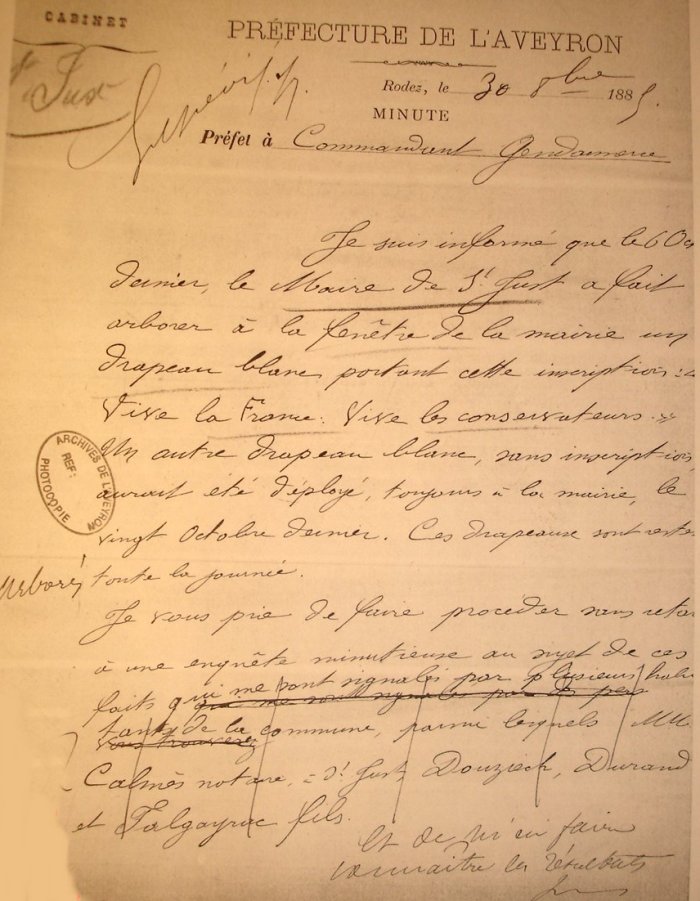 CABINET
PRÉFECTURE DE L'AVEYRON
St Just
Rodez, le 30 8bre 1885.
MINUTE
Préfet à Commandant Gendarmerie
Je suis informé que le 6 Oc
dernier, le Maire de St Just a fait
arborer à la fenêtre de la mairie un
drapeau blanc portant cette inscription : «
Vive la France. Vive les conservateurs. »
Un autre drapeau blanc, sans inscription
aurait été déployé, toujours à la mairie, le
vingt Octobre dernier. Ces drapeaux sont restés
arborés toute la journée.
Je vous prie de faire procéder sans retar
à une enquête minutieuse au sujet de ces
faits qui me sont signalés par plusieurs habi
que me sont signalés par des pers
tants de la commune, parmi lesquels MM.
vous trouverez
Calmès notaire, à St Just, Douzieck, Durand
et Falgayrac fils.
Et de m'en faire
connaître les résultats
ARCHIVES DE L'AVEYRON
REF:
PHOTOCOPIE